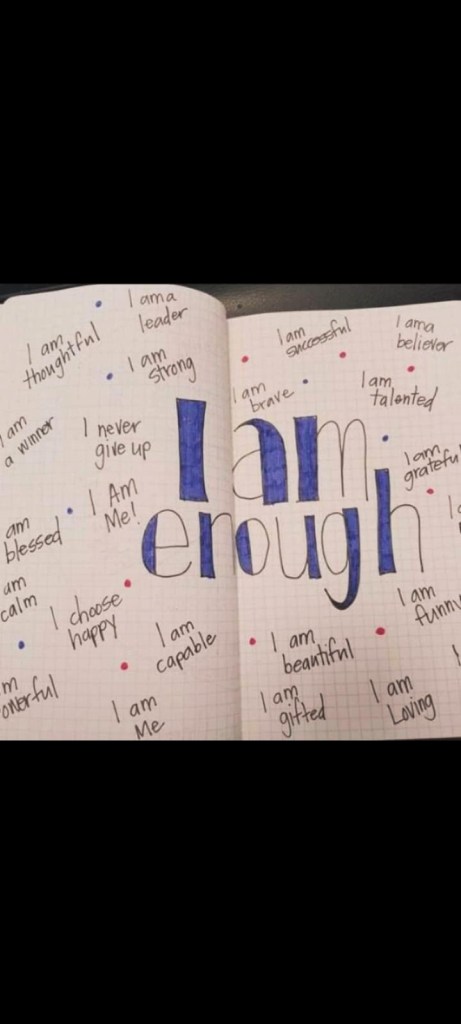 I am a
leader
I am
thoughtful
I am
strong
am
a winner
I never
give up
I AM
Me!
am
blessed
am
calm
I choose
happy
I am
capable
I am
Me
I am
successful
I am a
believer
I am
brave
I am
talented
I am
enough
I am
grateful
I am
funny
I am
beautiful
I am
gifted
I am
Loving